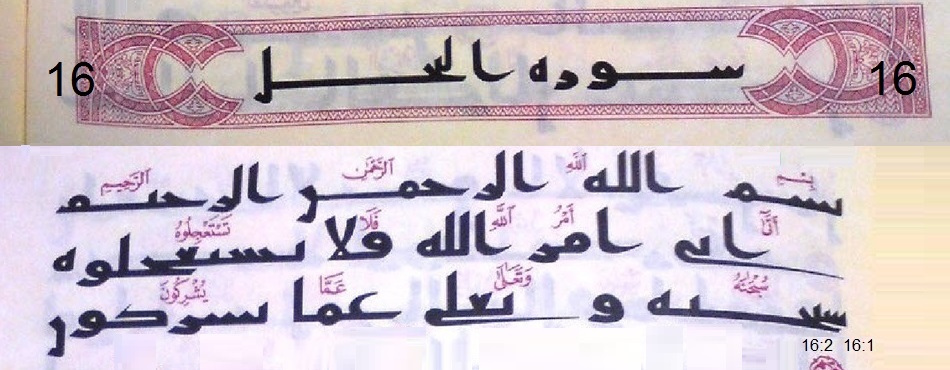 16 سوره النحل 16
بِسْمِ اللّٰهِ الرَّحْمٰنِ الرَّحِيمِ
بسم الله الرحمن الرحيم
أَتَىٰ أَمْرُ اللّٰهِ فَلَا تَسْتَعْجِلُوهُ
اتى امر الله فلا تستعجلوه
سُبْحٰنَهُ وَتَعٰلَىٰ عَمَّا يُشْرِكُونَ
سبحنه و تعلى عما يشركون
16:2 16:1